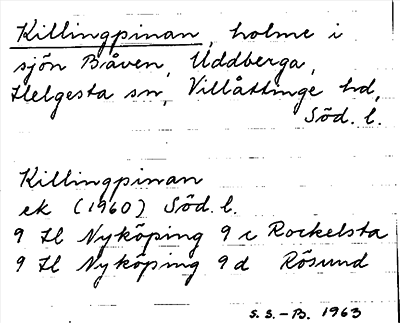 Killingpinan, holme i
sjön Båven, Uddberga,
Helgesta sn, Villåttinge hd,
Söd. l.
Killingpinan
ek (1960) Söd. l.
9 H Nyköping 9 c Rockelsta
9 H Nyköping 9 d Rösund
S.S.-B. 1963